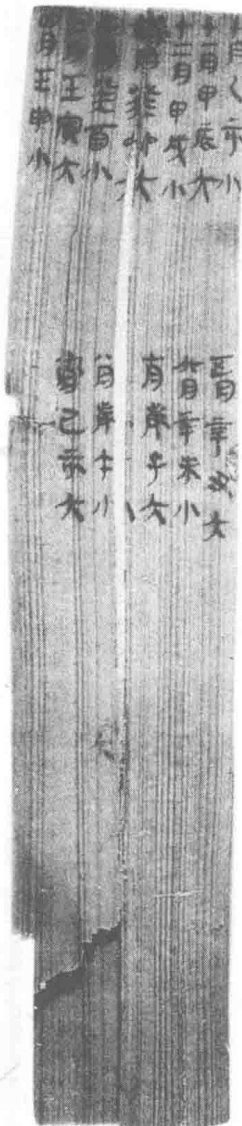 十月乙亥小
十一月甲辰大
十二月甲戌小
端月癸卯大
月癸酉小
月壬寅大
四月壬申小
五月辛丑大
六月辛未小
七月庚子大
八月庚午小
九月己亥大